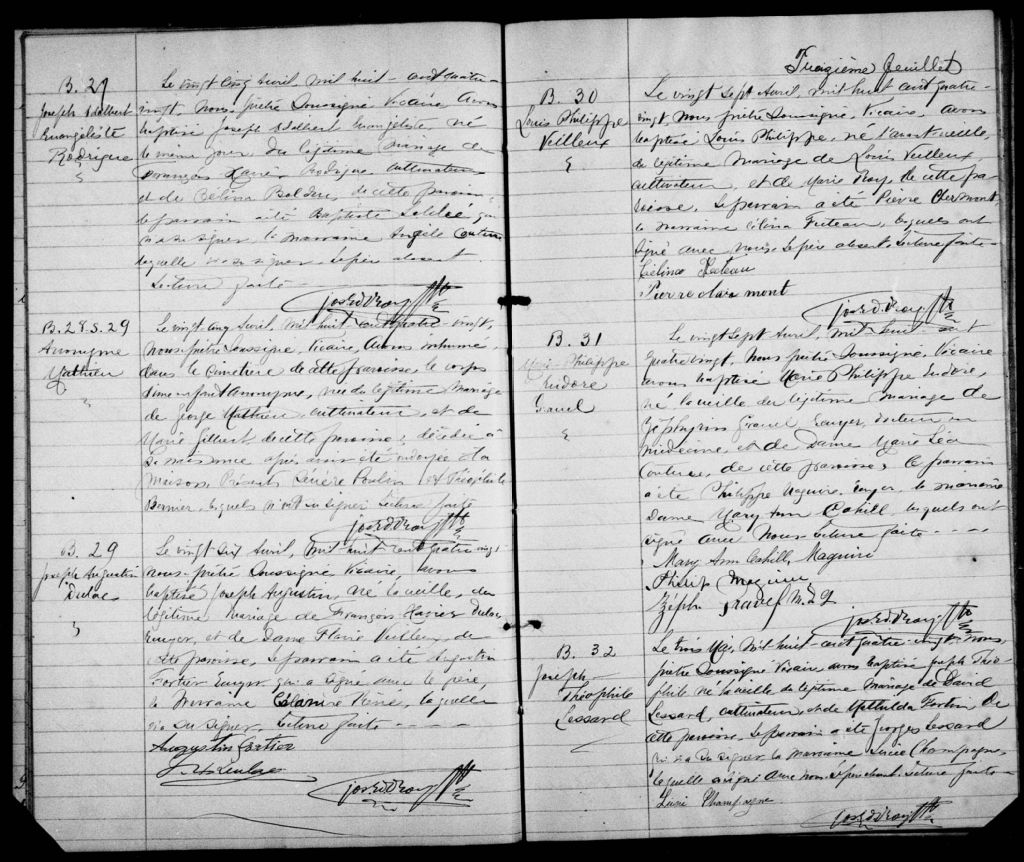 B. 27
Joseph Adalbert
Evangéliste
Rodrigue
Le vingt cinq Avril, mil huit-cent quatre-
vingt, nous prêtre soussigné Vicaire avons
baptisé Joseph Adalbert Evangeliste, né
le même jour, du légitime mariage de
François Xavier Rodrigue cultivateur
et de Célina Bolduc, de cette paroisse
le parrain a été Baptiste
n'a su signer, la marraine Angèle
laquelle n'a su signer. Le père absent.
Lecture faite
Jos. Ed. D. Roy Ptre
B. 28. S. 29
Anonyme
Mathieu
Le vingt cinq Avril, mil huit cent quatre vingt,
nous prêtre soussigné, Vicaire, avons inhumé,
dans le cimetière de cette paroisse, le corps
d'une enfant anonyme, née du légitime mariage
de George Mathieu, cultivateur, et de
Marie Gilbert de cette paroisse, décédée à
sa naissance après avoir été ondoyée à la
maison. Présents Poulin et Théophile
Bernier, lesquels n'ont su signer. Lecture faite
Jos. Ed. D. Roy Ptre
B. 29
Joseph Augustin
Dulac
Le vingt six Avril, mil huit cent quatre vingt
nous prêtre soussigné Vicaire, avons
baptisé Joseph Augustin, né la veille, du
légitime mariage de François Xavier Dulac
Ecuyer, et de Dame Flavie Veilleux, de
cette paroisse. Le parrain a été Augustin
Fortier Ecuyer, qui a signé avec le père,
la marraine laquelle
n'a su signer. Lecture faite
Augustin Fortier
Jos. Ed. D. Roy Ptre
Treizième feuillet
B. 30
Louis Philippe
Veilleux
Le vingt sept Avril, mil huit cent quatre-
vingt nous prêtre soussigné, Vicaire, avons
baptisé Louis Philippe, né l'avant veille,
du légitime mariage de Louis Veilleux,
cultivateur, et de Marie Roy, de cette pa-
roisse. Le parrain a été Pierre Clermont,
la marraine Célina Luteau, lesquels ont
signé avec nous. Le père absent. Lecture faite-
Célina
Pierre Clermont
Jos. Ed. D. Roy Ptre
B. 31
Marie Philippe
Eudore
Gravel
Le vingt sept Avril, mil huit cent
quatre vingt, nous prêtre soussigné, Vicaire
avons baptisé Marie Philippe Eudore,
né la veille du légitime mariage de
Zéphyrin Gravel Ecuyer, docteur en
médecine et de Dame Marie Léa
Couture, de cette paroisse, le parrain
a été Philippe Maguire, Ecuyer, la marraine
Dame Mary Ann Cahill, lesquels ont
signé avec nous. Lecture faite - - - -
Mary Ann Cahill Maguire
Philip Maguire
Zéph. Gravel M.D.
Jos. Ed. D. Roy Ptre
B. 32
Joseph
Théophile
Lessard
Le trois Mai, mil huit-cent quatre-vingt nous,
prêtre soussigné Vicaire avons baptisé Joseph Théo-
phile né la veille du légitime mariage de David
Lessard, cultivateur, et de Mathilda Fortin de
cette paroisse. Le parrain a été Georges Lessard
qui n'a su signer la marraine Lucie Champagne,
laquelle a signé avec nous. Le père absent. Lecture faite-
Lucie Champagne
Jos. Ed. D. Roy Ptre